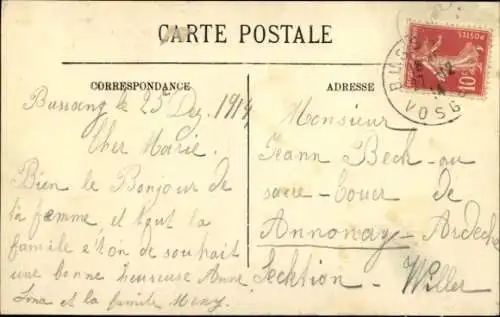 CARTE POSTALE
CORRESPONDANCE
ADRESSE
Bussang le 25 Dez. 1914
Cher Marie.
Bien le Bonjour de
ta fæmme, et tout la
famile et on de souhait
une bonne heureuse Anne
et la famile
Monsieur
Jeann Beck au
sacre-Couer de
Annonay - Ardeche
Secktion - Willer
POSTES
10
VOSG